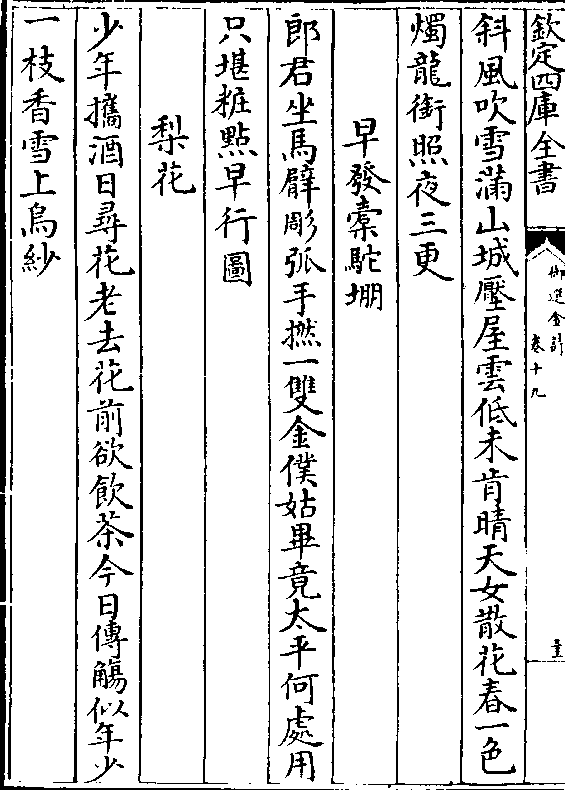 欽定四庫全書
御選金詩
卷十九
斜風吹雪滿山城壓屋雲低未肯晴天女散花春一色
燭龍銜照夜三更
早發橐駝堋
郎君坐馬臂彫弧手撚一雙金僕姑畢竟太平何處用
只堪粧點早行圖
梨花
少年攜酒日尋花老去花前欲飲茶今日傳觴似年少
一枝香雪上烏紗